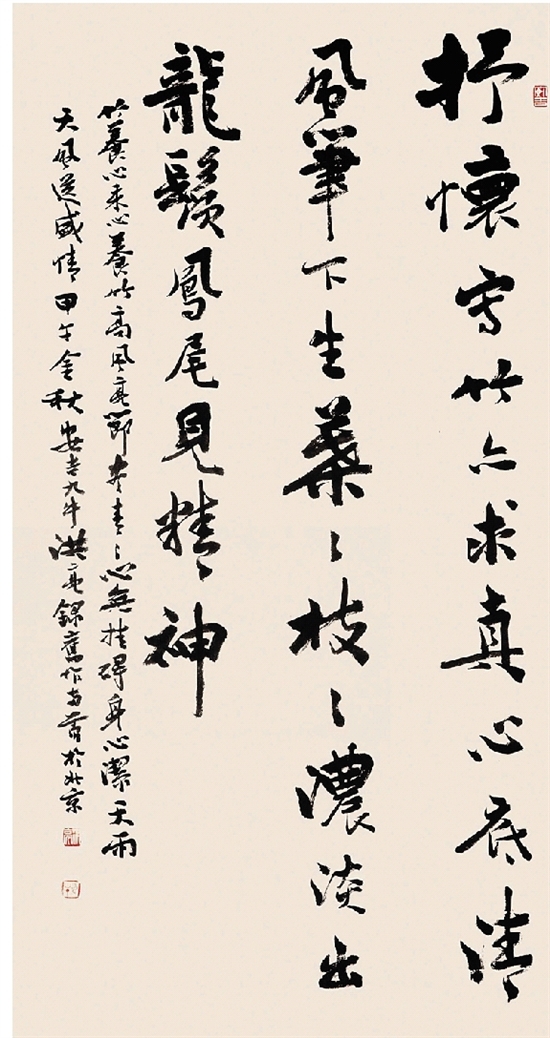 抒懷寫竹亦求真心底清
風筆下生葉〻枝〻濃淡出
龍鬚鳳尾見精神
竹養心來心養竹高風亮節青〻心無挂碍身心潔天雨
天風送盛情甲午金秋安吉九牛洪亮錄舊作於北京